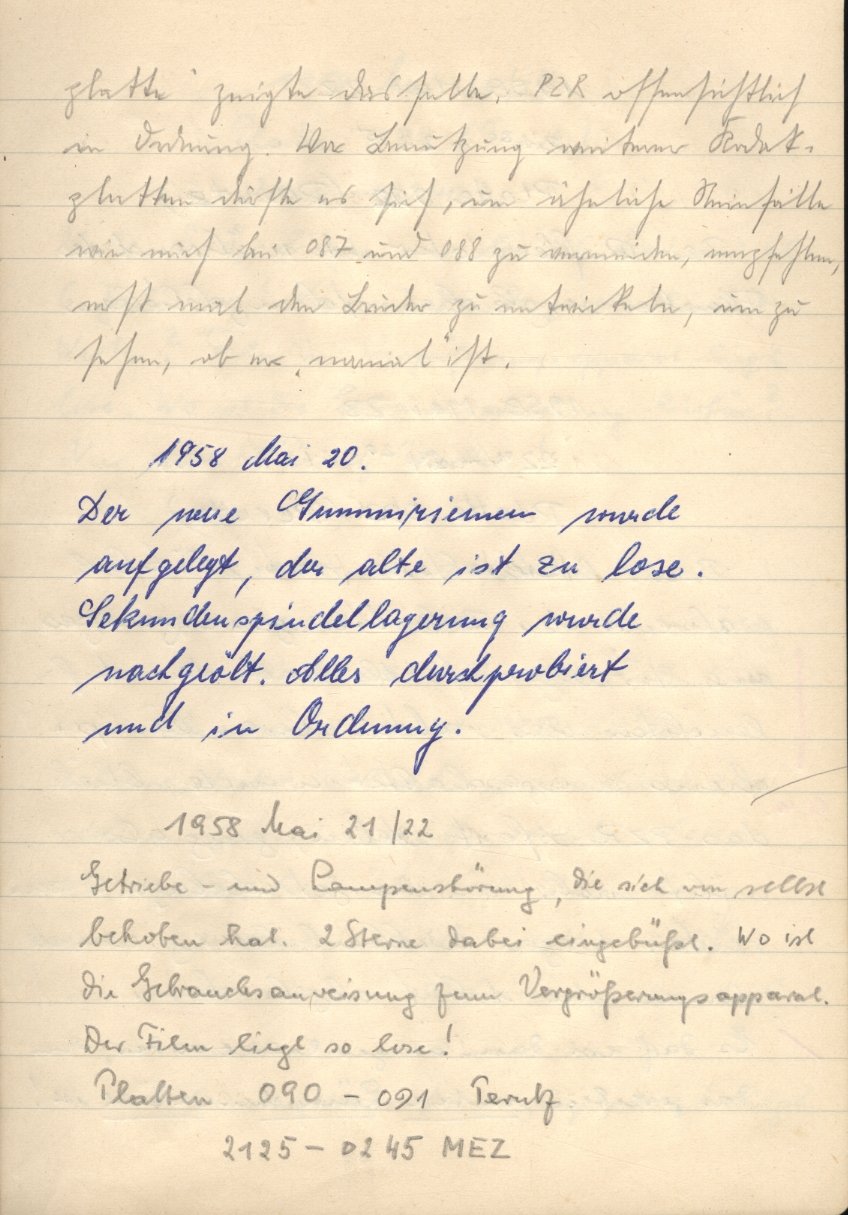 platte" zeigte dasselbe. PZR offensichtlich
in Ordnung. Vor Benützung weiterer Kodak-
platten dürfte es sich, um ähnliche Reinfälle
wie mich bei 087 und 088 zu vermeiden, empfehlen,
erst mal den Bruder zu entwickeln, um zu
sehen, ob er "normal" ist.
1958 Mai 20.
Der neue Gummiriemen wurde
aufgelegt, der alte ist zu lose.
Sekundenspindellagerung wurde
nachgeölt. Alles durchprobiert
und in Ordnung.
1958 Mai 21/22
Getriebe- und Lampenstörung, die sich von selbst
behoben hat. 2 Sterne dabei eingebüßt. Wo ist
die Gebrauchsanweisung zum Vergrößerungsapparat.
Der Film liegt so lose!
Platten 090 - 091 Perutz
2125 - 0245 MEZ